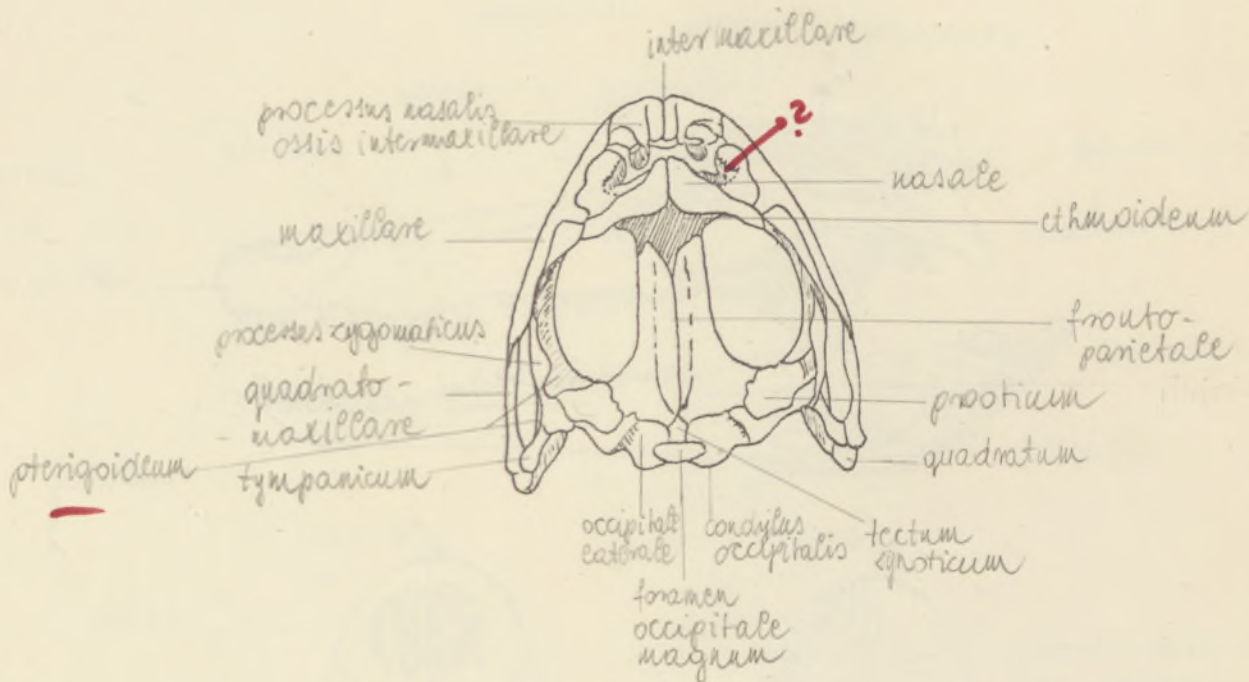 intermaxillare
processus nasalis
ossis intermaxillare
?
nasale
ethmoideum
maxillare
processes zygomaticus
fronto-
parietale
quadrato-
maxillare
prooticum
pterigoideum
tympanicum
quadratum
occipitale
laterale
condylus
occipitalis
tectum
synoticum
foramen
occipitale
magnum